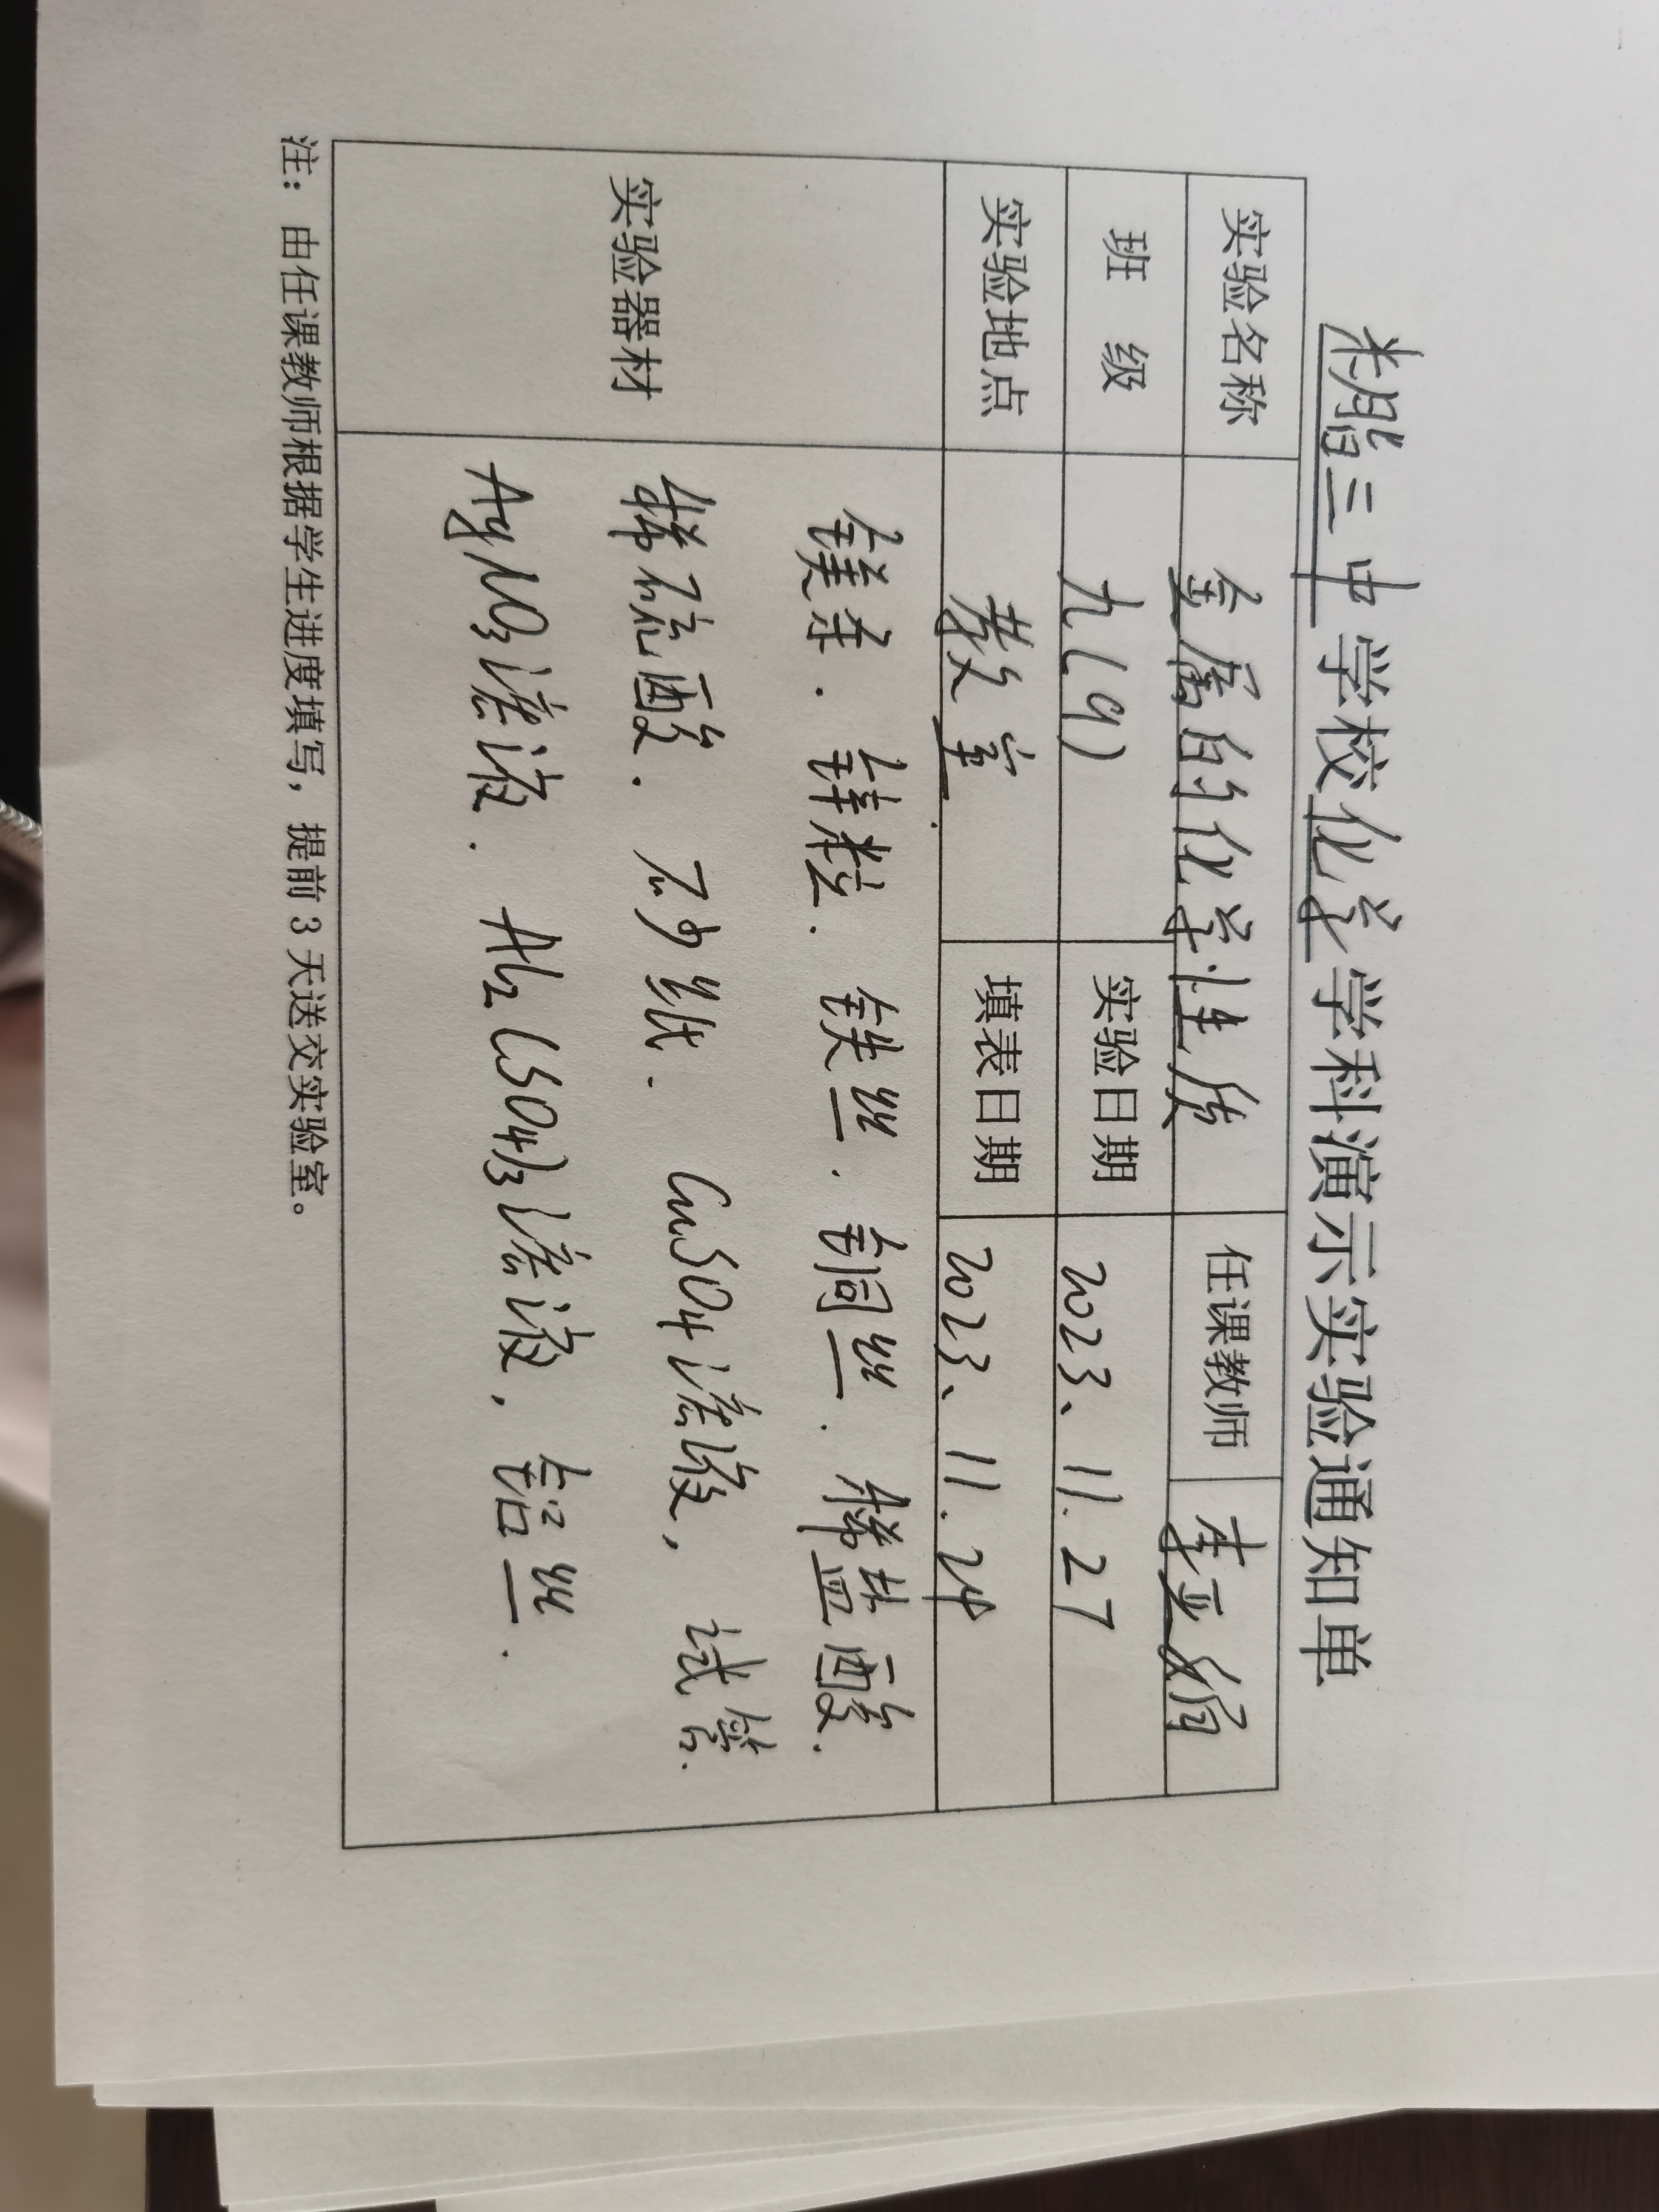 米脂三中学校化学学科演示实验通知单
实验名称 金属的化学性质 任课教师 李亚娟
班 级 九(9) 实验日期 2023、11.27
实验地点 教室. 填表日期 2023、11.24
实验器材
镁条. 锌粒. 铁丝. 铜丝. 稀盐酸.
稀硫酸. 砂纸. CuSO4溶液, 试管.
AgNO3溶液. Al2(SO4)3溶液, 铝丝.
注：由任课教师根据学生进度填写，提前3天送交实验室。